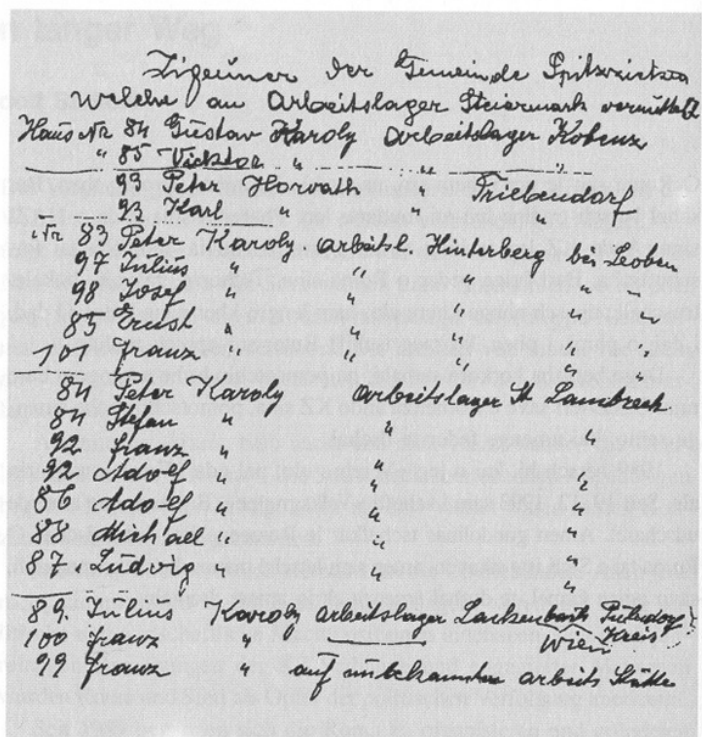 Zigeuner der Gemeinde Spitzzicken
Welche an Arbeitslager Steiermark vermittelt
Haus Nr. 84 Gustav Karoly Arbeitslager Kobenz
" 85 Vicktor " " "
93 Peter Horvath " Triebendorf
93 Karl " " "
Nr. 83 Peter Karoly arbeitsl. Hinterberg bei Leoben
97 Julius " " " " "
98 Josef " " " " "
85 Ernst " " " " "
101 Franz " " " " "
84 Peter Karoly arbeitslager St Lambrech
84 Stefan " " "
92 Franz " " "
92 Adolf " " "
86 Adolf " " "
88 Michael " " "
87 Ludvig " " "
89. Julius Karoly arbeitslager Lackenbach
100 Franz " Wien Kreis
99 Franz " auf unbekannten arbeits Stätte